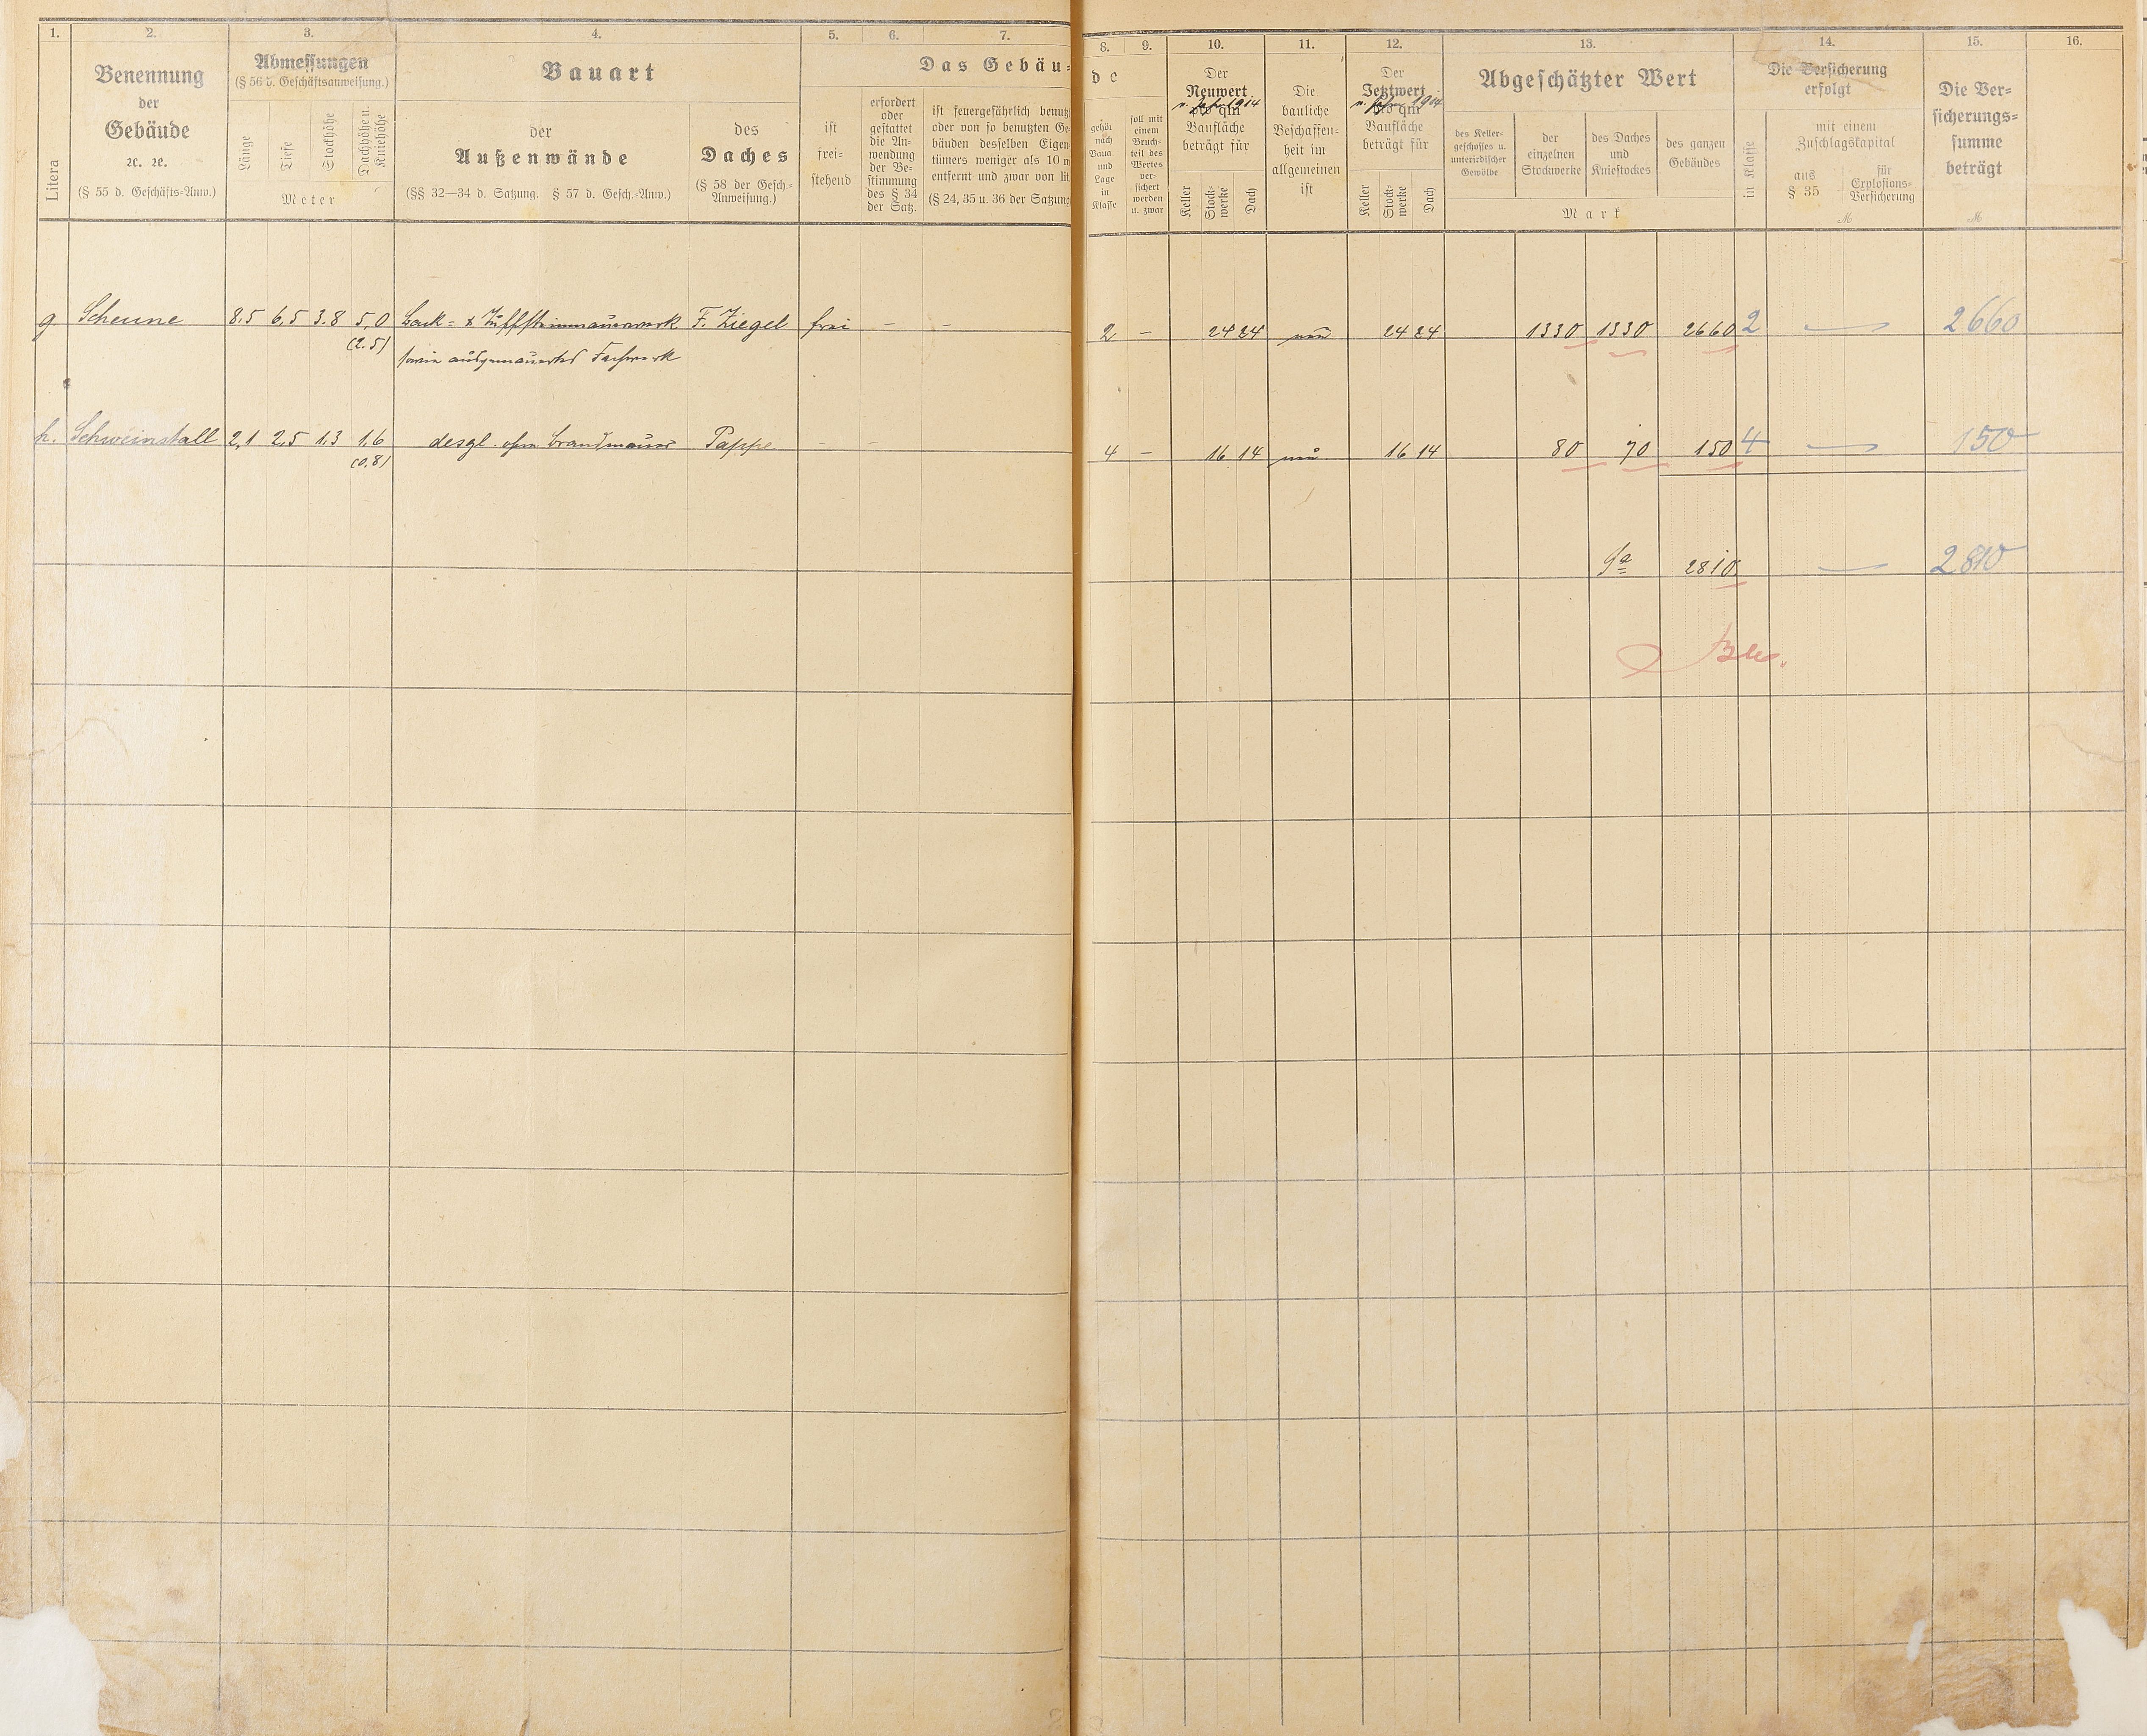 1.
2.
3.
4.
5.
6.
7.
8.
9.
10.
11.
12.
13.
14.
15.
16.
Litera
Benennung
der
Gebäude
ꝛc. ꝛc.
(§ 55 d. Geschäfts-Anw.)
Abmessungen
(§ 56 d. Geschäftsanweisung.)
Länge
Tiefe
Stockhöhe
Dachhöhe u.
Kniehöhe
Meter
Bauart
der
Außenwände
(§§ 32—34 d. Satzung. § 57 d. Gesch.-Anw.)
des
Daches
(§ 58 der Gesch.-
Anweisung.)
Das Gebäu-
ist
frei-
stehend
erfordert
oder
gestattet
die An-
wendung
der Be-
stimmung
des § 34
der Satz.
ist feuergefährlich benutz
oder von so benutzten Ge-
bäuden desselben Eigen-
tümers weniger als 10 m
entfernt und zwar von lit.
(§ 24, 35 u. 36 der Satzung
de
gehört
nach
Bauart
und
Lage
in
Klasse
soll mit
einem
Bruch-
teil des
Wertes
ver-
sichert
werden
u. zwar
Der
Neuwert
v. Jahre 1914
pro qm
Baufläche
beträgt für
Keller
Stock-
werke
Dach
Die
bauliche
Beschaffen-
heit im
allgemeinen
ist
Der
Jetztwert
v. Jahre 1914
pro qm
Baufläche
beträgt für
Keller
Stock-
werke
Dach
Abgeschätzter Wert
des Keller-
geschosses u.
unterirdischer
Gewölbe
der
einzelnen
Stockwerke
des Daches
und
Kniestockes
des ganzen
Gebäudes
Mark
Die Versicherung
erfolgt
in Klasse
mit einem
Zuschlagskapital
aus
§ 35
für
Explosions-
Versicherung
M
Die Ver-
sicherungs-
summe
beträgt
M
g. Scheune 8,5 6,5 3.8 5,0 Back- & Tuffsteinmauerwerk F. Ziegel frei – – 2 – 24 24 neu 24 24 1330 1330 2660 2 — 2660
(2.5) sowie ausgemauertes Fachwerk
h. Schweinstall 2,1 2,5 1,3 1,6 desgl. ohne Brandmauer Pappe – – 4 – 16 14 neu 16 14 80 70 150 4 — 150
(0,8)
Sa 2810 — 2810